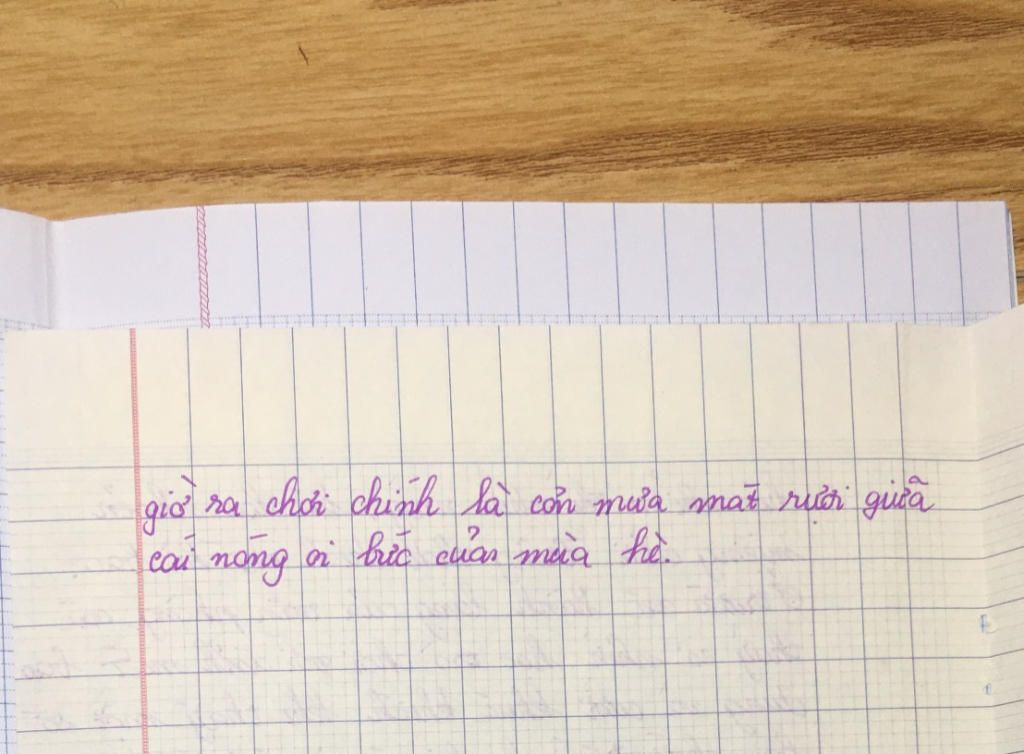 giờ ra chơi chính là cơn mưa mát rượi giữa
cái nóng oi bức của mùa hè.